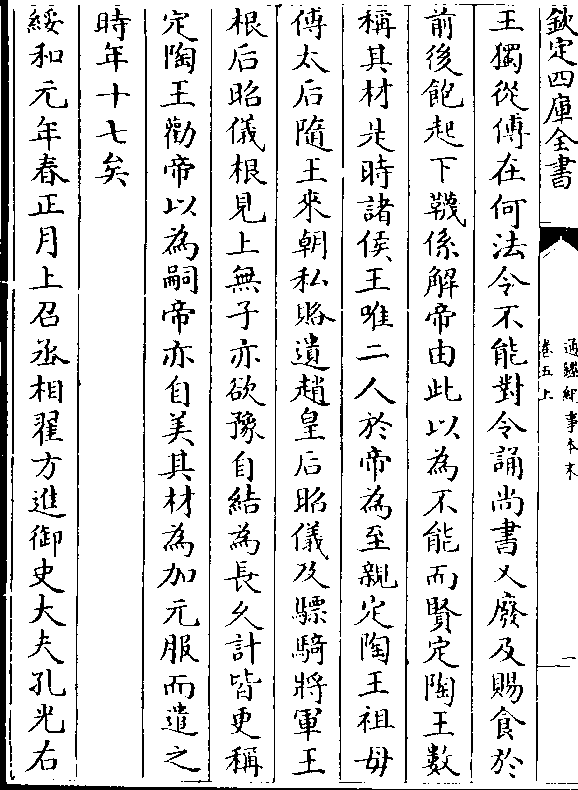 欽定四庫全書
通鑑紀事本末
卷五上
王獨從傅在何法令不能對令誦尚書又廢及賜食於
前後飽起下韈係解帝由此以為不能而賢定陶王數
稱其材是時諸侯王唯二人於帝為至親定陶王祖母
傅太后隨王來朝私賂遺趙皇后昭儀及驃騎將軍王
根后昭儀根見上無子亦欲豫自結為長久計皆更稱
定陶王勸帝以為嗣帝亦自美其材為加元服而遣之
時年十七矣
綏和元年春正月上召丞相翟方進御史大夫孔光右